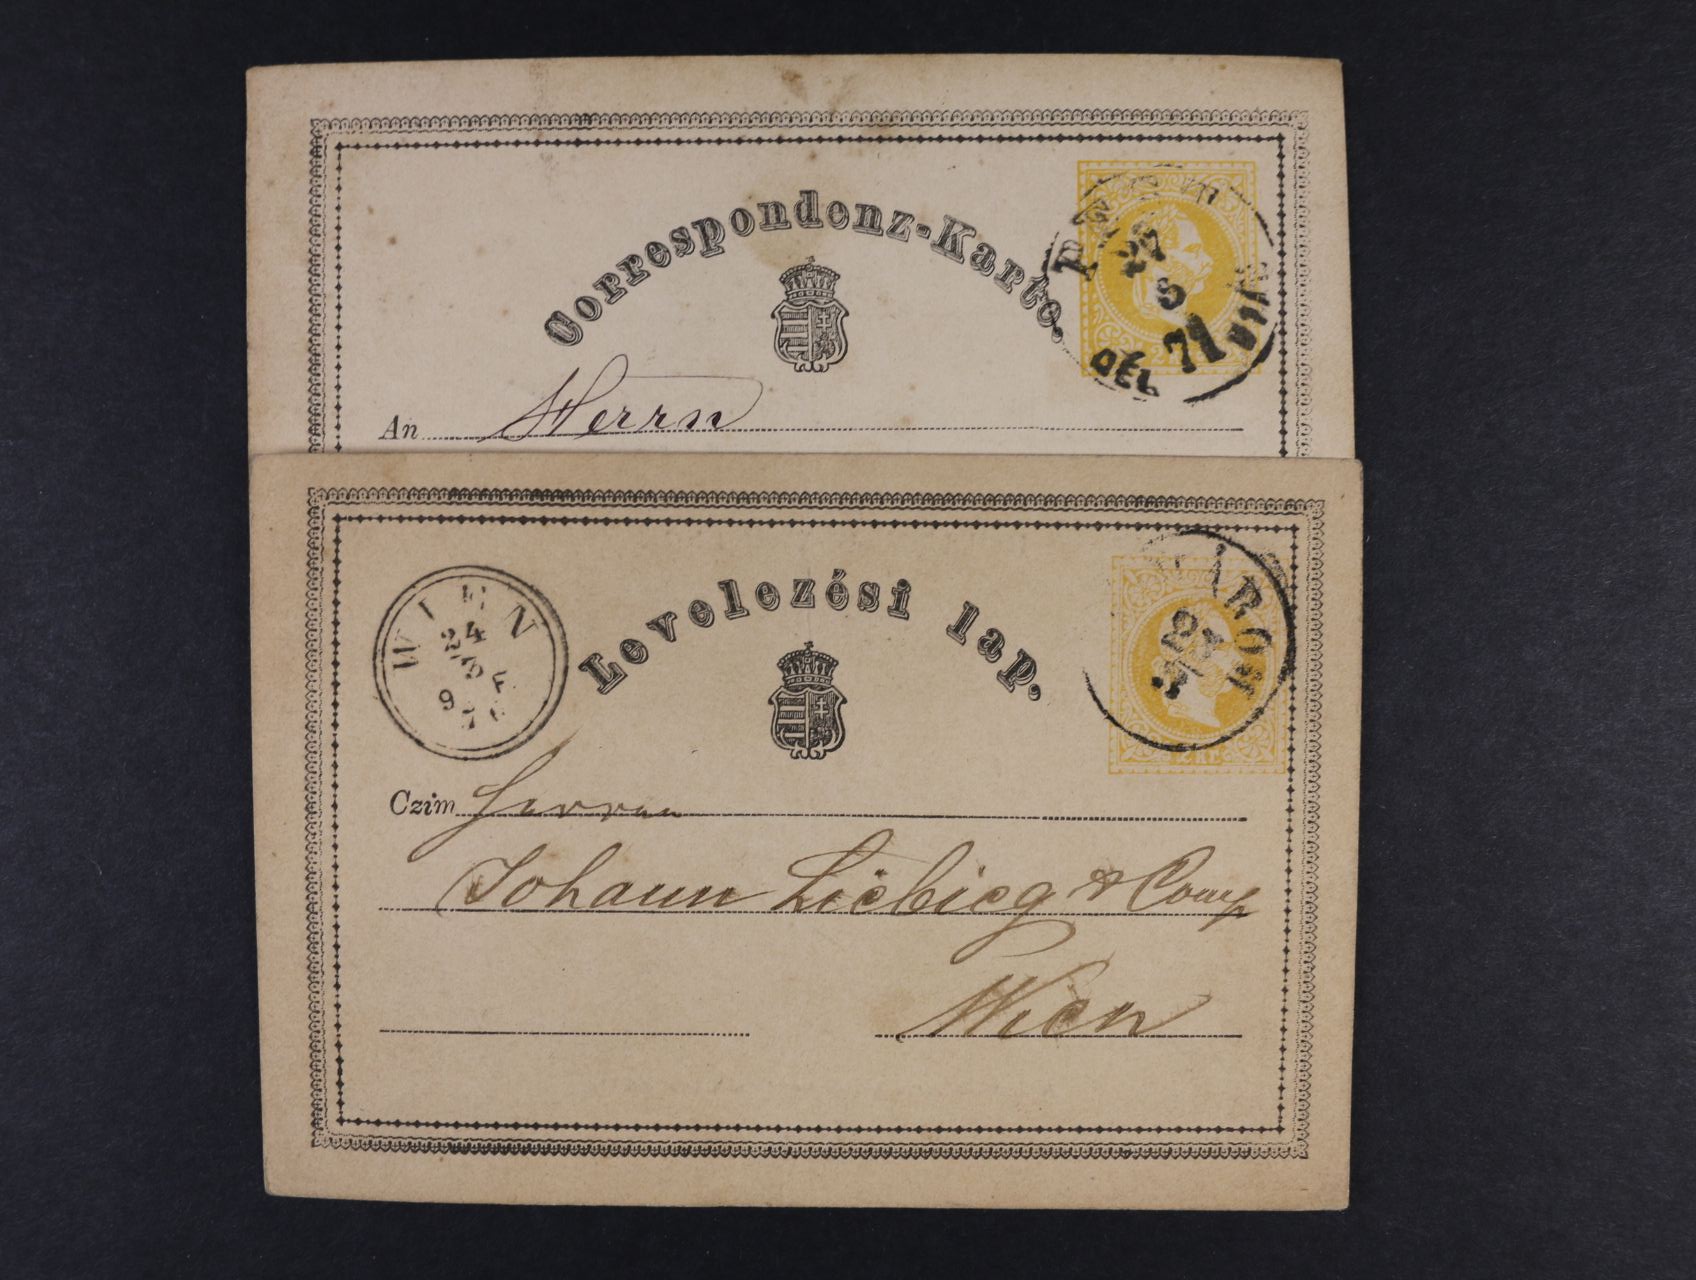 Correspondenz-Karte.
27
8
71
DÉL
An Herrn
Levelezési lap.
WIEN
24
3
9 F
2 KR.
Czim Herren
Johann Liebieg & Comp
Wien